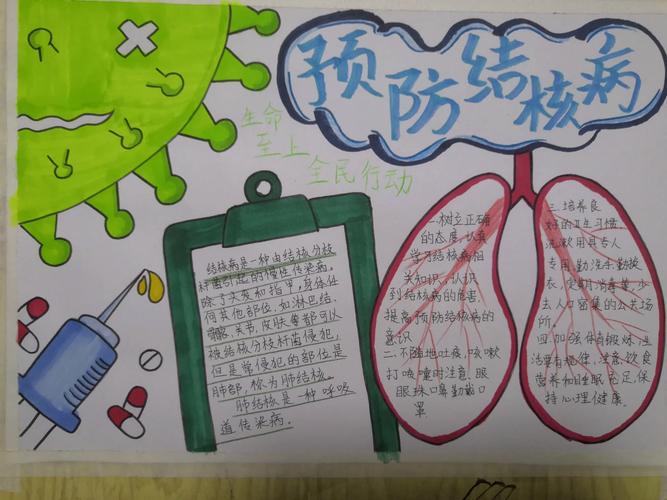 预防结核病
生命
至上
全民行动
结核病是一种由结核分枝
杆菌引起的慢性传染病。
除了头发和指甲，身体任
何其他部位，如淋巴结、
关节、皮肤等都可以
被结核分枝杆菌侵犯，
但是常侵犯的部位是
肺部，称为肺结核。
肺结核是一种呼吸
道传染病。
一.树立正确
的态度，认真
学习结核病相
关知识，认识
到结核病的危害，
提高预防结核病的
意识
二.不随地吐痰，咳嗽
打喷嚏时注意
口鼻勤戴口
罩
三.培养良
好的卫生习惯，
洗漱用具专人
专用，勤洗手勤换
衣，定期消毒等，少
去人口密集的公共场
所。
四.加强体育锻炼，生
活要有规律，注意饮食
营养和睡眠充足，保
持心理健康。